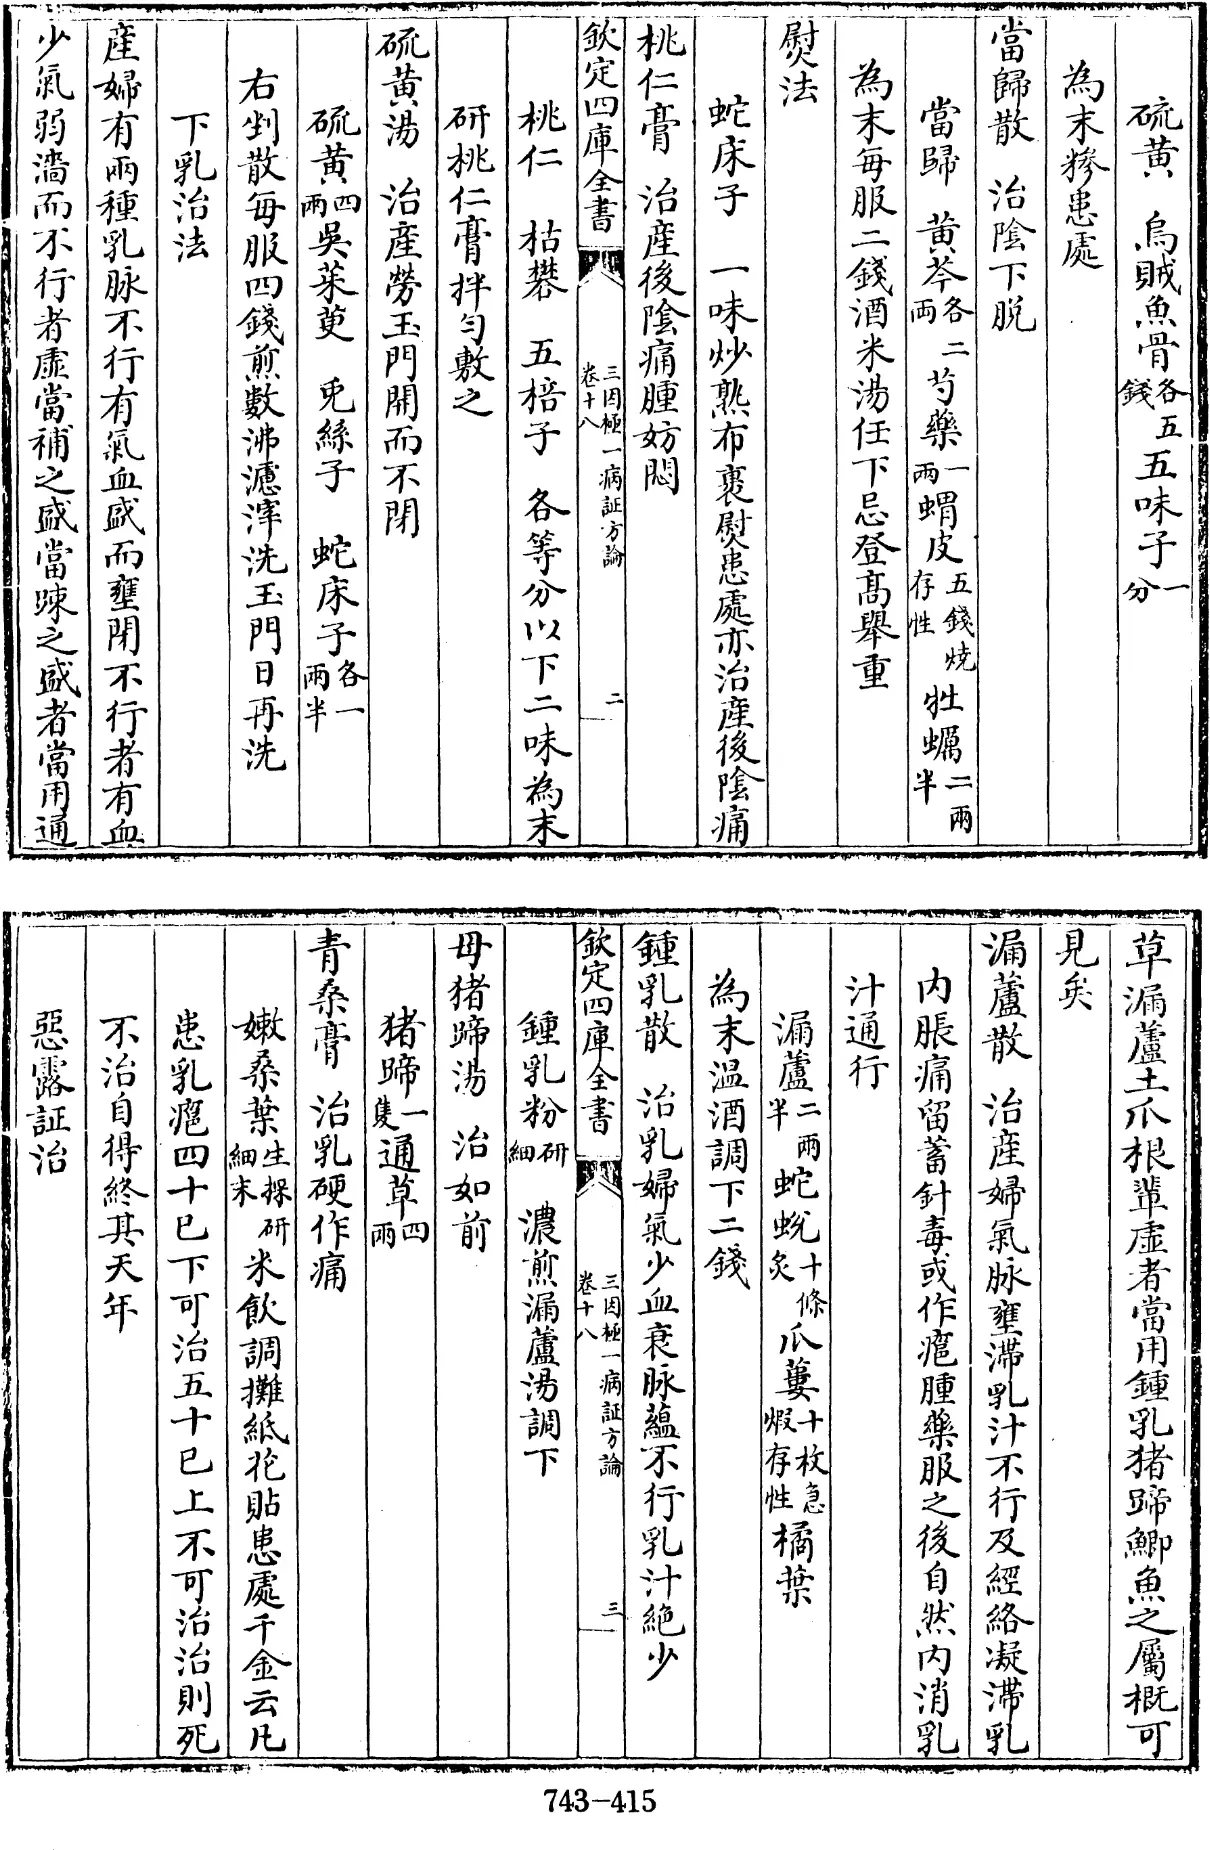 硫黄　烏賊魚骨各五錢五味子一分
為末糝患處
當歸散　治陰下脱
當歸　黄芩各二兩芍藥一兩蝟皮五錢燒存性牡蠣二兩半
為末每服二錢酒米湯任下忌登高舉重
熨法
蛇床子　一味炒熟布裹熨患處亦治產後陰痛
桃仁膏　治產後陰痛腫妨悶
欽定四庫全書　三因極一病証方論卷十八　二
桃仁　枯礬　五棓子　各等分以下二味為末
研桃仁膏拌勻敷之
硫黄湯　治產勞玉門開而不閉
硫黄四兩吳茱萸　兎絲子　蛇床子各一兩半
右剉散每服四錢煎數沸濾滓洗玉門日再洗
下乳治法
產婦有兩種乳脉不行有氣血盛而壅閉不行者有血
少氣弱濇而不行者虚當補之盛當踈之盛者當用通
草漏蘆土爪根輩虚者當用鍾乳猪蹄鯽魚之屬概可
見矣
漏蘆散　治產婦氣脉壅滯乳汁不行及經絡凝滯乳
内脹痛留蓄針毒或作瘡腫藥服之後自然内消乳
汁通行
漏蘆二兩半蛇蛻十條炙爪蔞十枚急煆存性橘葉
為末温酒調下二錢
鍾乳散　治乳婦氣少血衰脉蘊不行乳汁絶少
欽定四庫全書　三因極一病証方論卷十八　三
鍾乳粉研細　濃煎漏蘆湯調下
母猪蹄湯　治如前
猪蹄一隻通草四兩
青桑膏　治乳硬作痛
嫩桑葉生採研細末米飲調攤紙花貼患處千金云凡
患乳瘡四十已下可治五十已上不可治治則死
不治自得終其天年
惡露証治
743-415